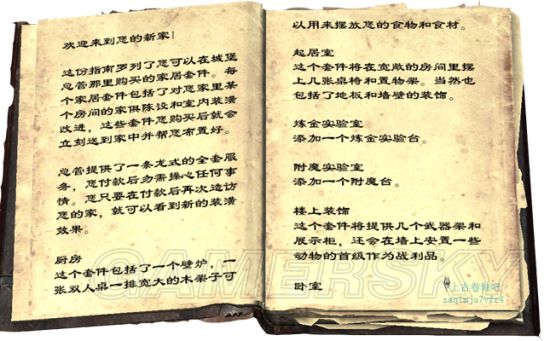 欢迎来到您的新家!
这份指南罗列了您可以在城堡
总管那里购买的家居套件。每
个家居套件包括了对您家里某
个房间的家俱陈设和室内装潢
改进，这些套件您购买后就会
立刻送到家中并帮您布置好。
总管提供了一条龙式的全套服
务，您付款后勿需操心任何事
情。您只要在付款后再次造访
您的家，就可以看到新的装潢
效果。
厨房
这个套件包括了一个壁炉，一
张双人桌一排宽大的木架子可
以用来摆放您的食物和食材。
起居室
这个套件将在宽敞的房间里摆
上几张桌椅和置物架。当然也
包括了地板和墙壁的装饰。
炼金实验室
添加一个炼金实验台。
附魔实验室
添加一个附魔台。
楼上装饰
这个套件将提供几个武器架和
展示柜，还会在墙上安置一些
动物的首级作为战利品。
卧室
GAMERSKY
上古卷轴吧
zaq1mju7vfr4